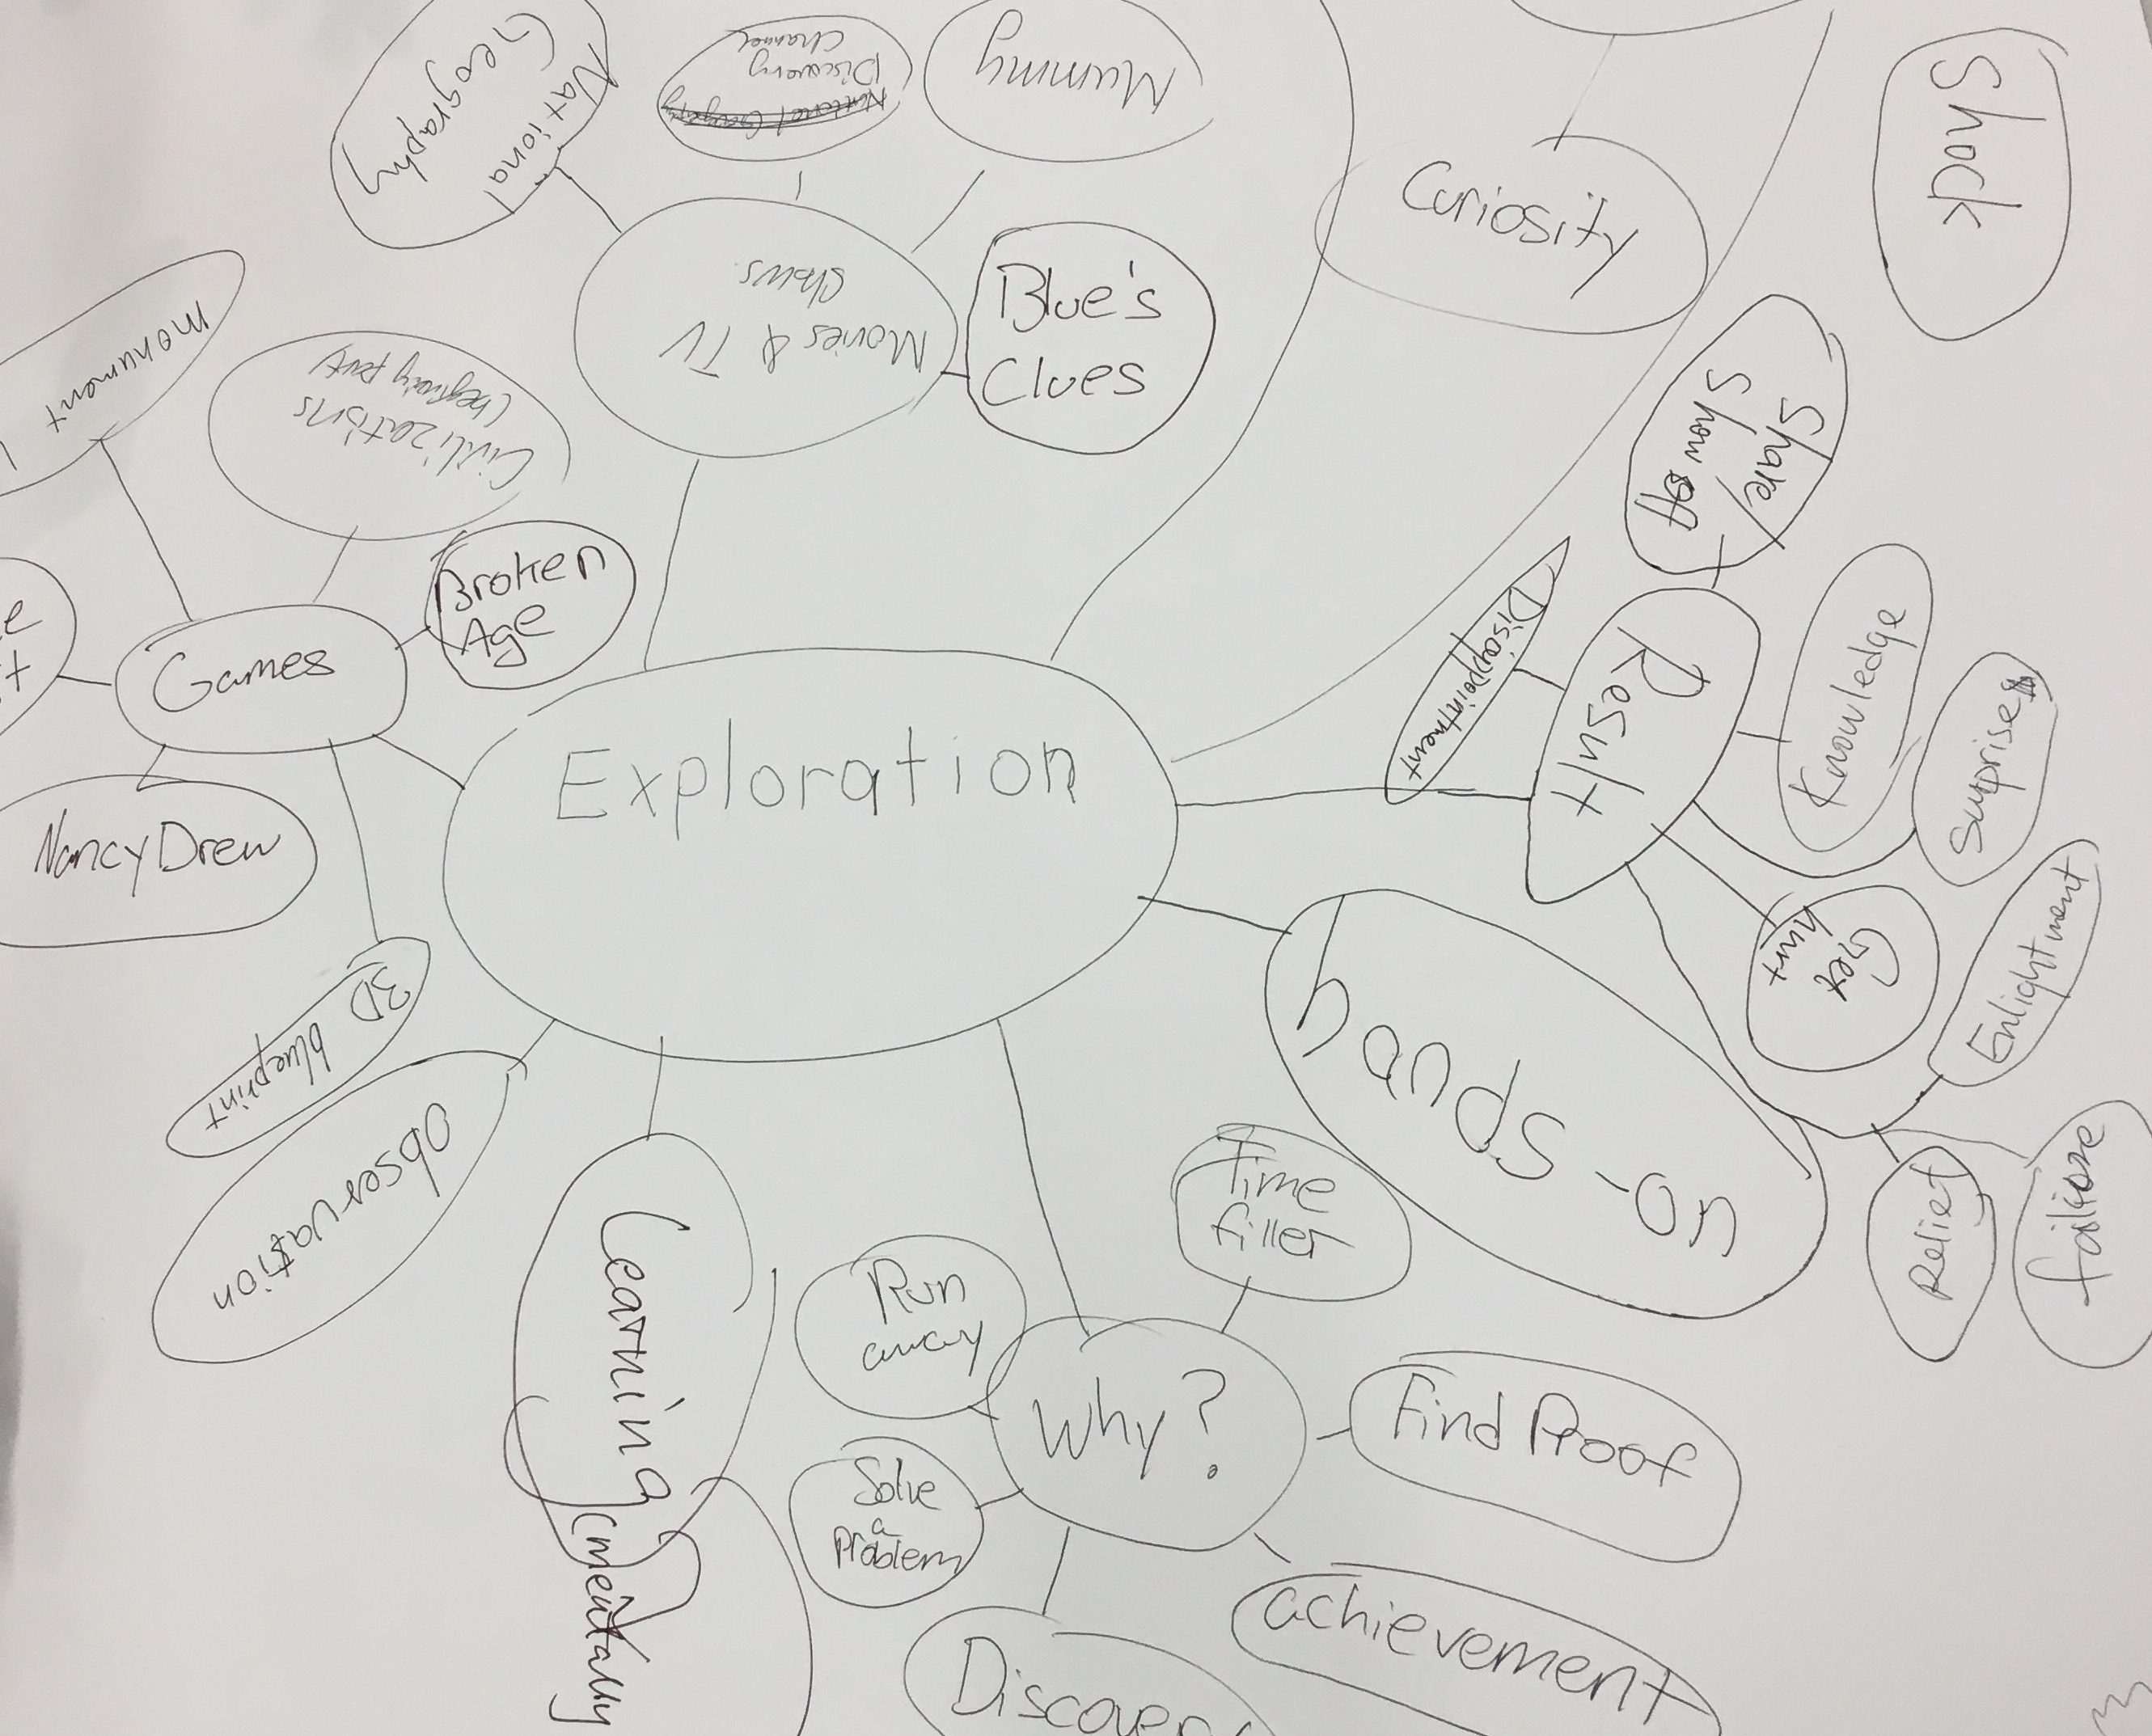 National
Geography
Discovery
Channel
Mummy
Movies & TV
shows
Blue's
Clues
Curiosity
Shock
monument
Civilizations
Broken
Age
Games
Nancy Drew
3D blueprint
Exploration
Share/
Show off
Disappointment
Result
Knowledge
Surprise
Get
hurt
Enlightment
Relief
failure
hands-on
Observation
Learning
(mentally
Time
filler
Run
away
Why?
Find Proof
Solve
a
Problem
achievement